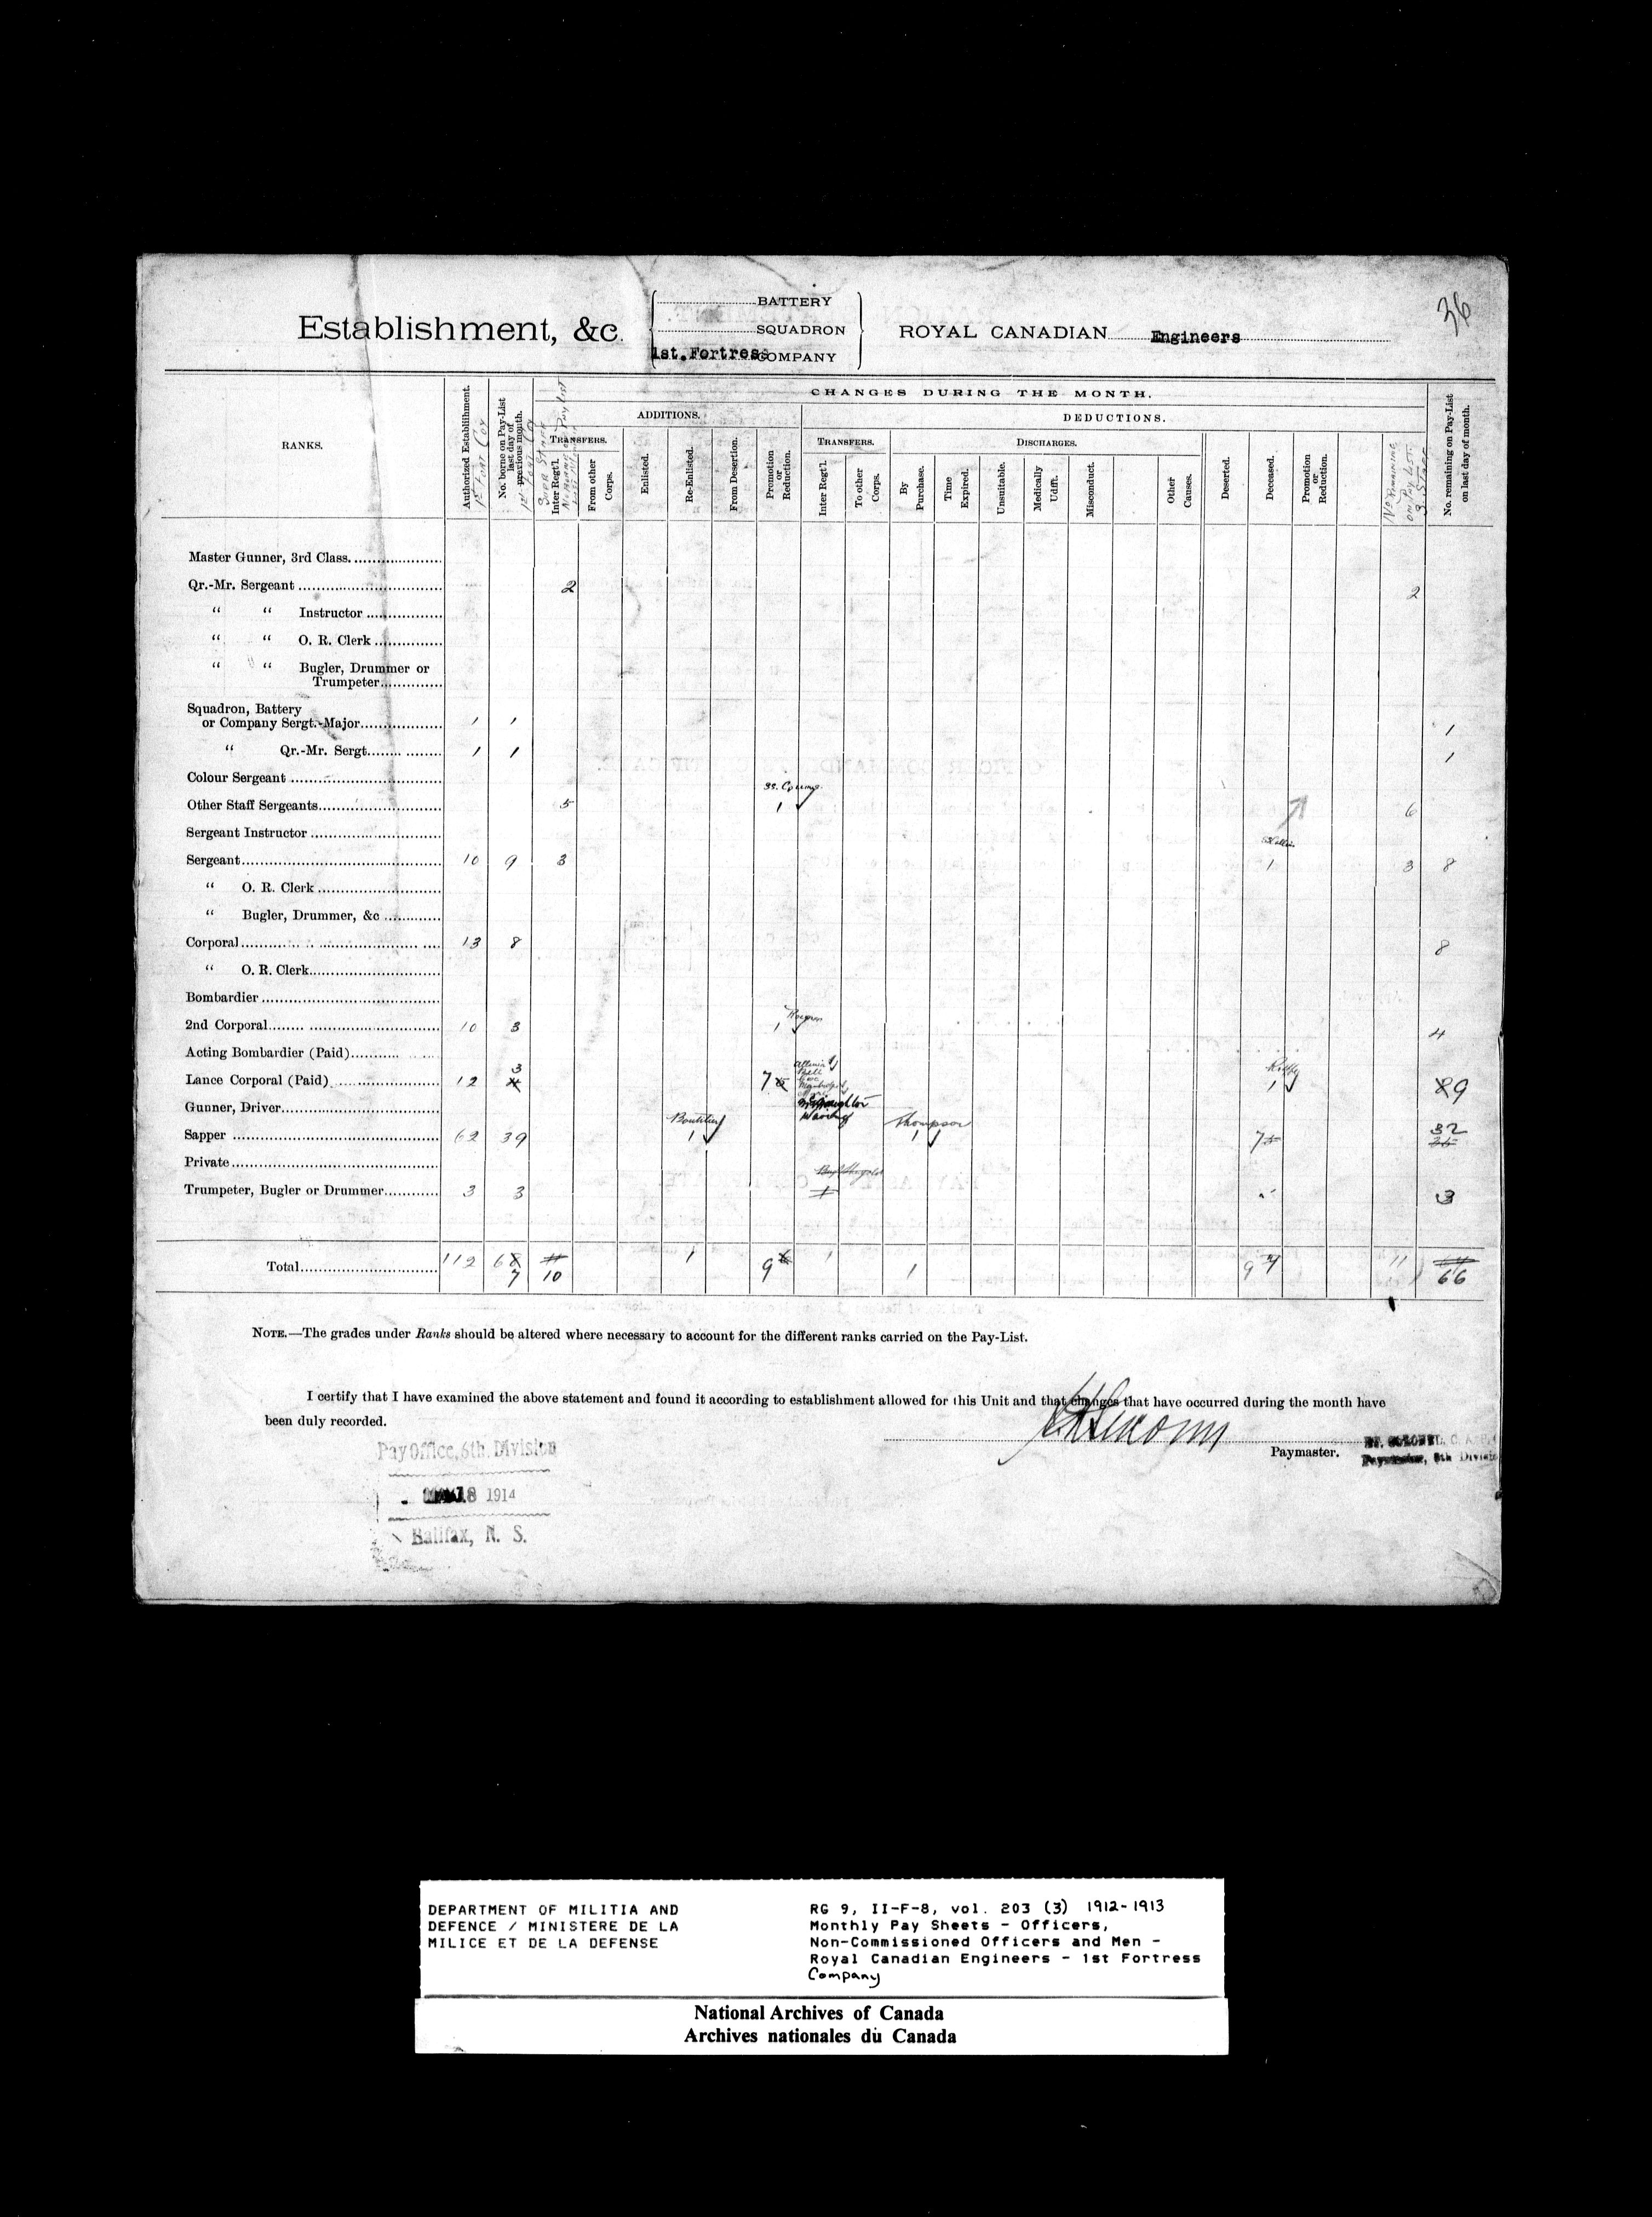 36
Establishment, &c.
BATTERY
SQUADRON
1st.Fortress COMPANY
ROYAL CANADIAN Engineers
RANKS.
Authorized Establishment.
1st Fort Coy
No. borne on Pay-List last day of previous month.
CHANGES DURING THE MONTH.
ADDITIONS.
DEDUCTIONS.
TRANSFERS.
Inter Reg't'l.
From other Corps.
Enlisted.
Re-Enlisted.
From Desertion.
Promotion or Reduction.
TRANSFERS.
Inter Reg't'l.
To other Corps.
DISCHARGES.
By Purchase.
Time Expired.
Unsuitable.
Medically Udfft.
Misconduct.
Other Causes.
Deserted.
Deceased.
Promotion or Reduction.
No Remaining on Pay List
No. remaining on Pay-List on last day of month.
Master Gunner, 3rd Class
Qr.-Mr. Sergeant 2 2
" " Instructor
" " O. R. Clerk
" " Bugler, Drummer or
Trumpeter
Squadron, Battery
or Company Sergt.-Major 1 1 1
" Qr.-Mr. Sergt. 1 1 1
Colour Sergeant
Other Staff Sergeants 5 1 6
Sergeant Instructor
Sergeant 10 9 3 1 3 8
" O. R. Clerk
" Bugler, Drummer, &c
Corporal 13 8 8
" O. R. Clerk
Bombardier
2nd Corporal 10 3 1 4
Acting Bombardier (Paid)
Lance Corporal (Paid) 12 3 7 1 9
Gunner, Driver
Waring
Thompson
Sapper 62 39 1 1 7 32
Private
Trumpeter, Bugler or Drummer 3 3 3
Total 112 67 10 1 9 1 1 9 11 66
NOTE.—The grades under Ranks should be altered where necessary to account for the different ranks carried on the Pay-List.
I certify that I have examined the above statement and found it according to establishment allowed for this Unit and that changes that have occurred during the month have
been duly recorded.
Paymaster.
Pay Office, 6th. Division
18 1914
Halifax, N. S.
LT. COLONEL, C.
Paymaster, 6th Division
DEPARTMENT OF MILITIA AND
DEFENCE / MINISTERE DE LA
MILICE ET DE LA DEFENSE
RG 9, II-F-8, vol. 203 (3) 1912-1913
Monthly Pay Sheets - Officers,
Non-Commissioned Officers and Men -
Royal Canadian Engineers - 1st Fortress
Company
National Archives of Canada
Archives nationales du Canada